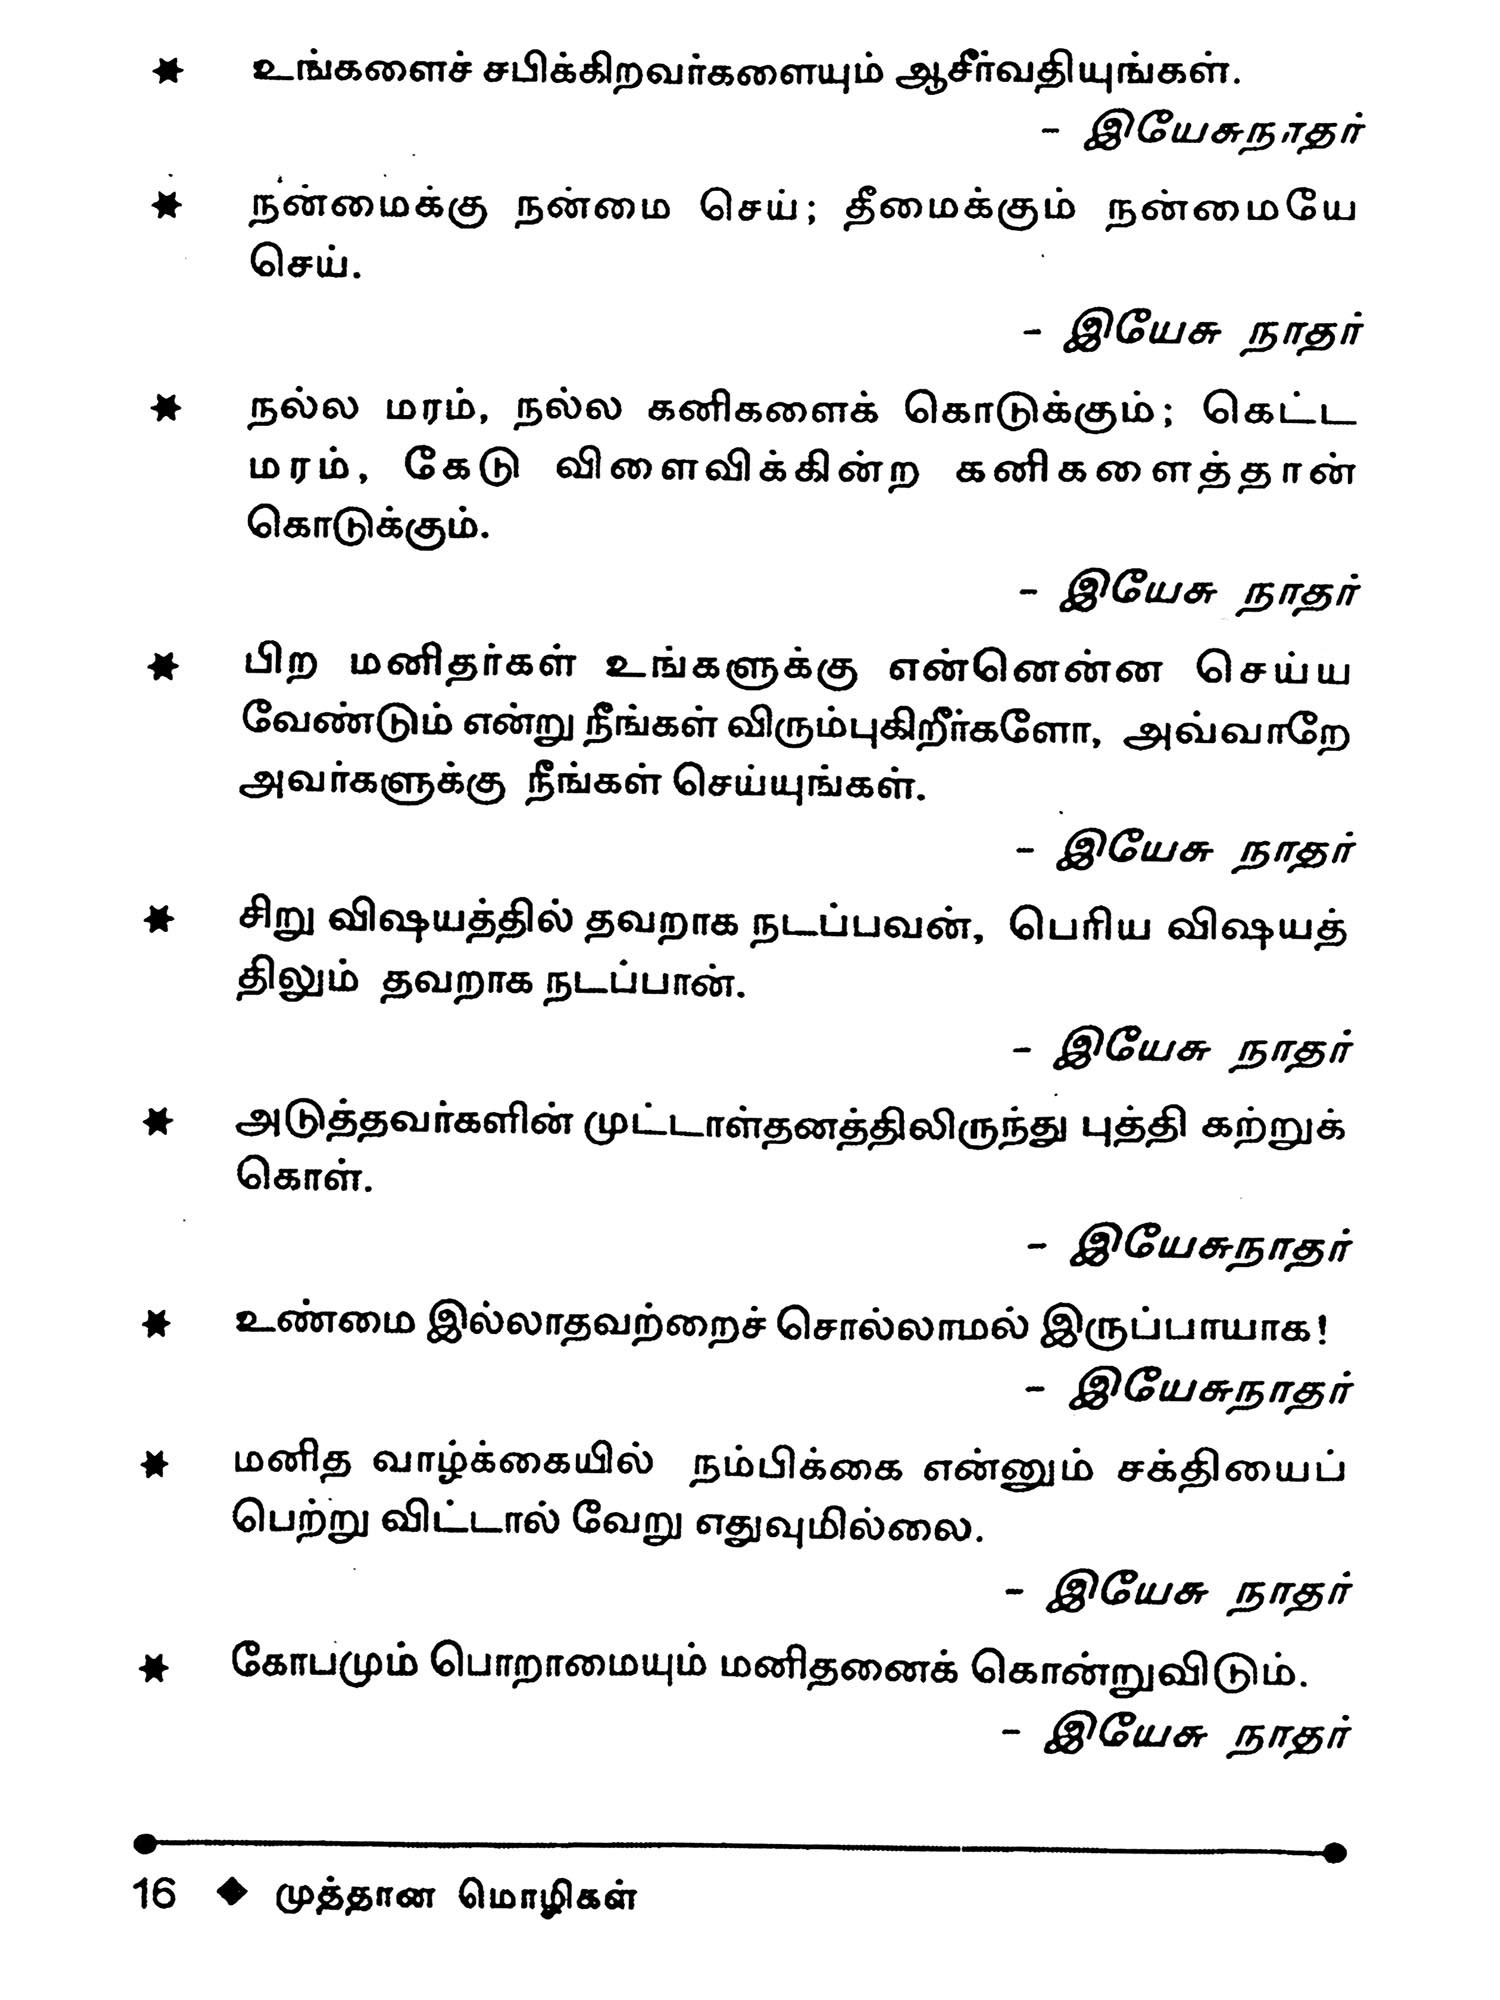 ✶ உங்களைச் சபிக்கிறவர்களையும் ஆசீர்வதியுங்கள்.
- இயேசுநாதர்
✶ நன்மைக்கு நன்மை செய்; தீமைக்கும் நன்மையே
செய்.
- இயேசு நாதர்
✶ நல்ல மரம், நல்ல கனிகளைக் கொடுக்கும்; கெட்ட
மரம், கேடு விளைவிக்கின்ற கனிகளைத்தான்
கொடுக்கும்.
- இயேசு நாதர்
✶ பிற மனிதர்கள் உங்களுக்கு என்னென்ன செய்ய
வேண்டும் என்று நீங்கள் விரும்புகிறீர்களோ, அவ்வாறே
அவர்களுக்கு நீங்கள் செய்யுங்கள்.
- இயேசு நாதர்
✶ சிறு விஷயத்தில் தவறாக நடப்பவன், பெரிய விஷயத்
திலும் தவறாக நடப்பான்.
- இயேசு நாதர்
✶ அடுத்தவர்களின் முட்டாள்தனத்திலிருந்து புத்தி கற்றுக்
கொள்.
- இயேசுநாதர்
✶ உண்மை இல்லாதவற்றைச் சொல்லாமல் இருப்பாயாக!
- இயேசுநாதர்
✶ மனித வாழ்க்கையில் நம்பிக்கை என்னும் சக்தியைப்
பெற்று விட்டால் வேறு எதுவுமில்லை.
- இயேசு நாதர்
✶ கோபமும் பொறாமையும் மனிதனைக் கொன்றுவிடும்.
- இயேசு நாதர்
16 ◆ முத்தான மொழிகள்